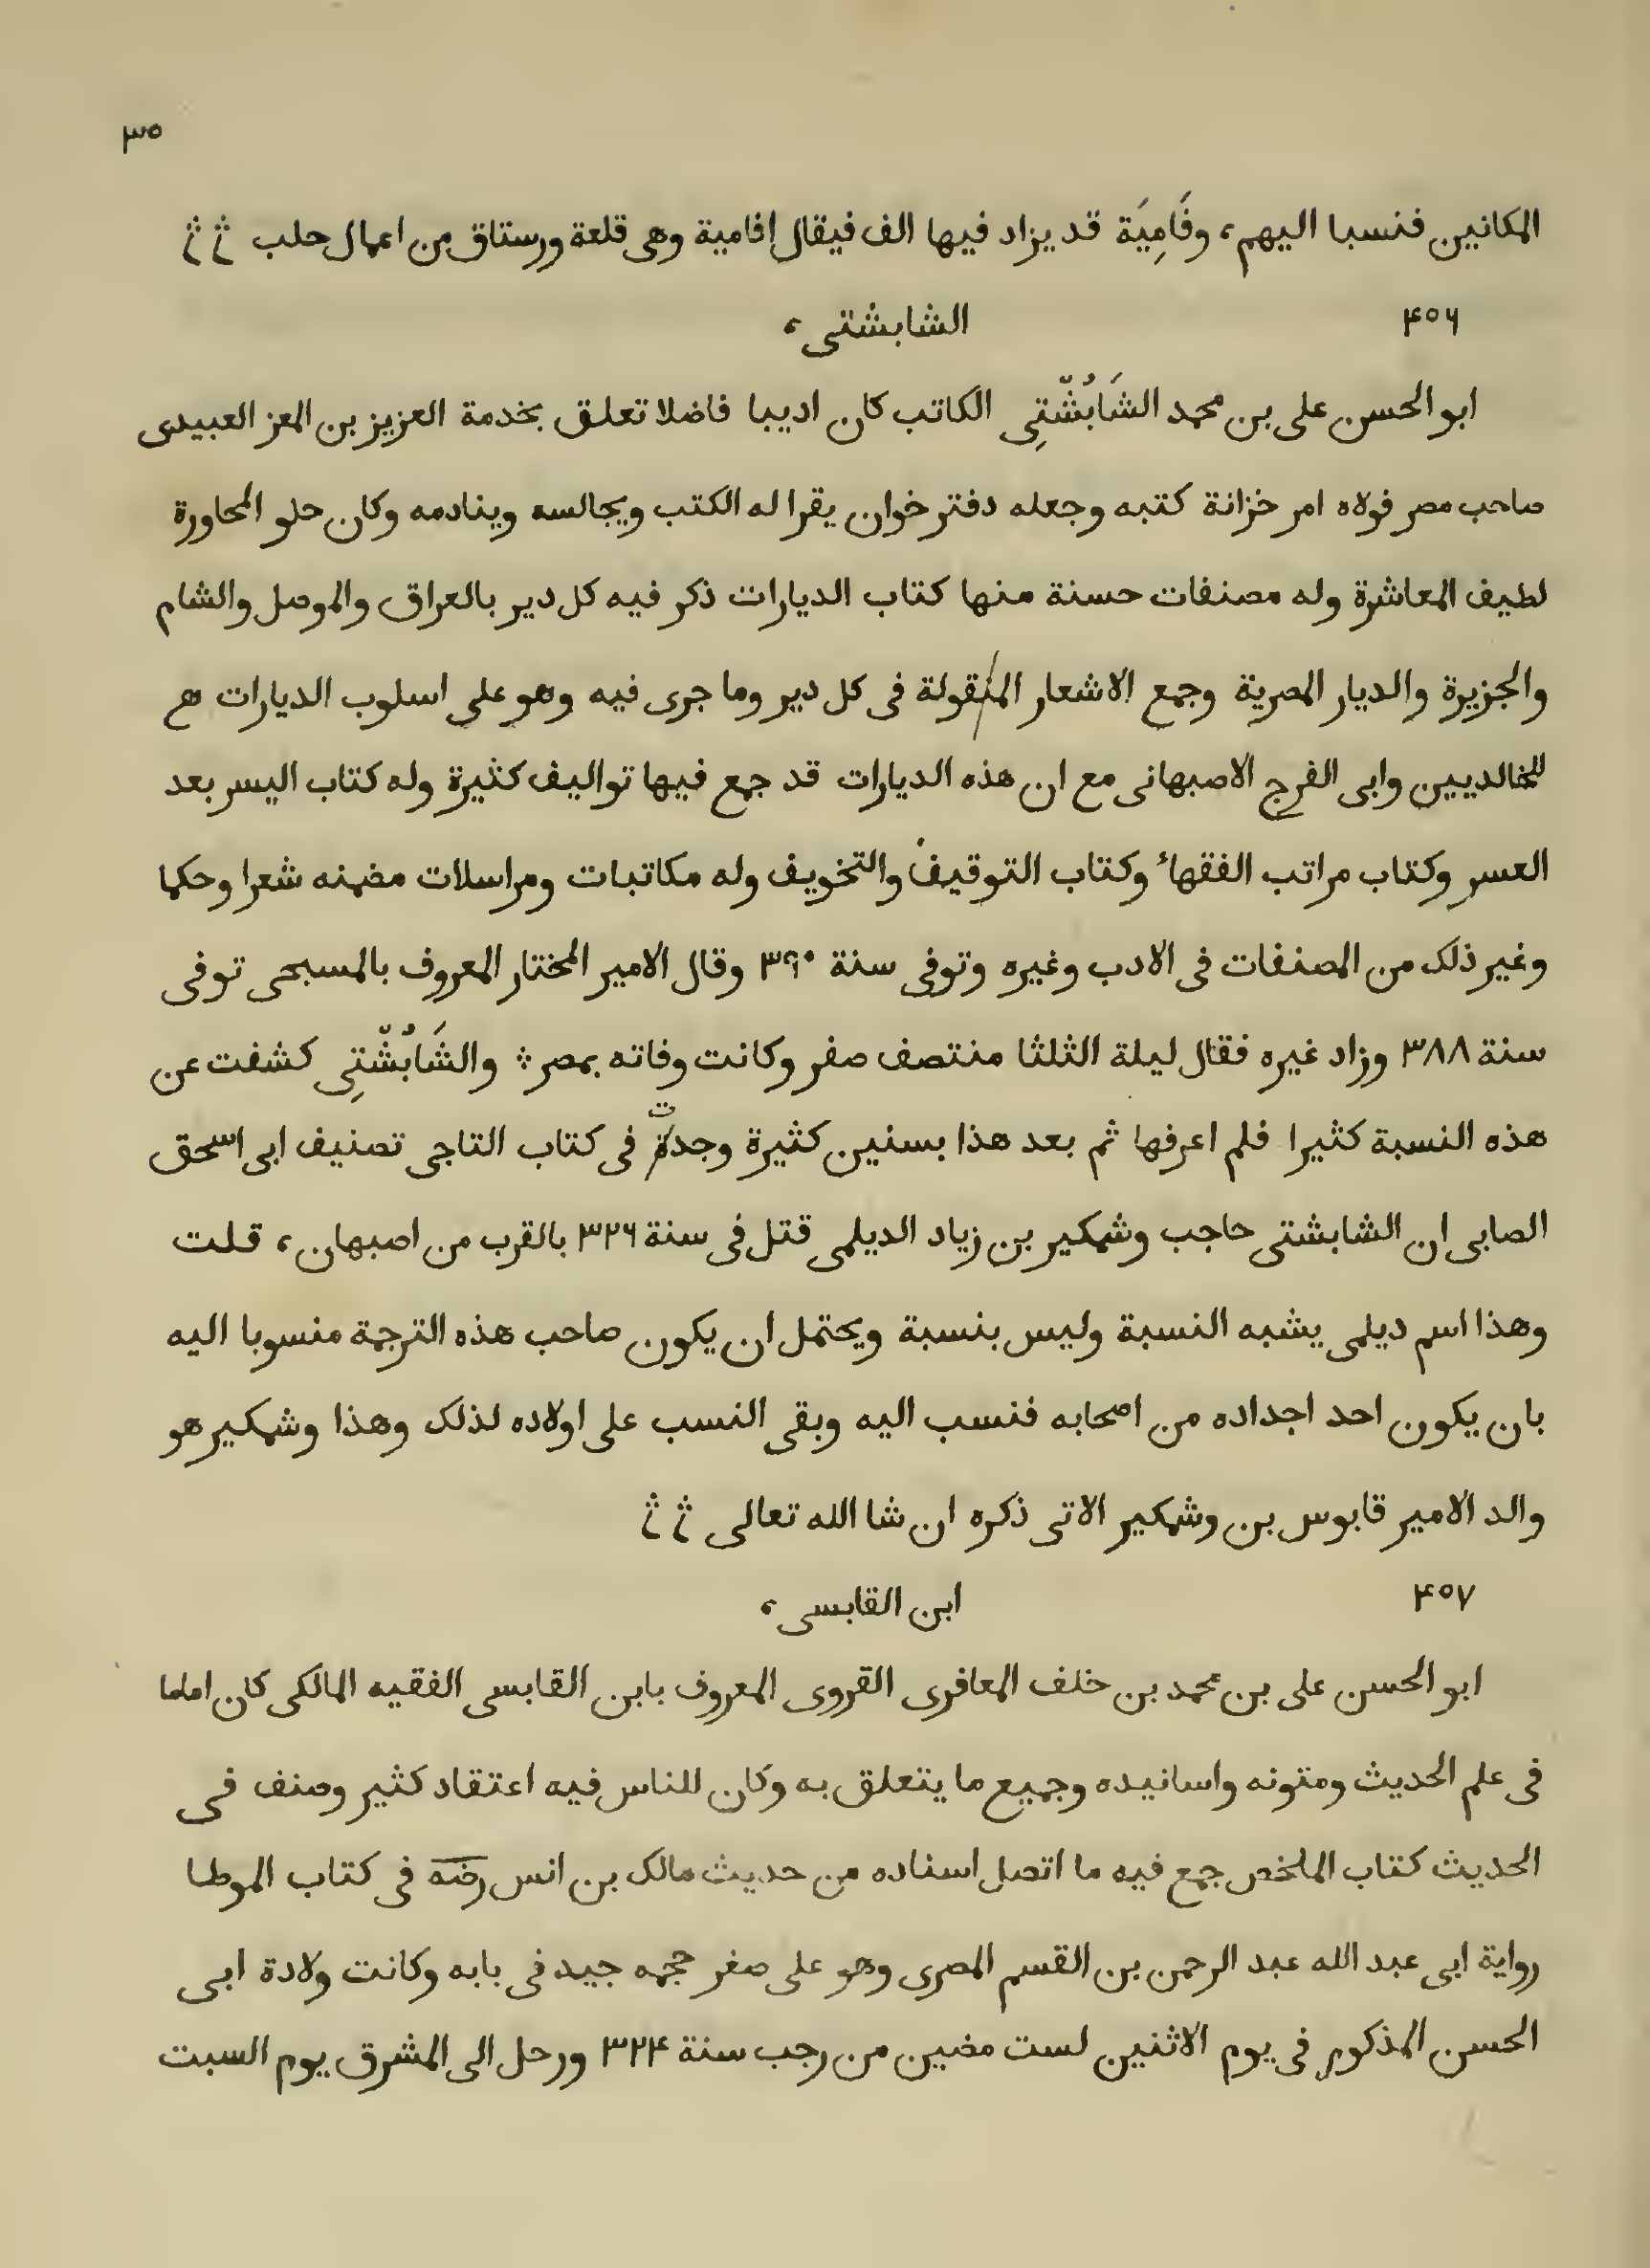 ٣٥
المكانين فنسبا اليهم، وفَامِيَة قد يزاد فيها الف فيقال افامية وهى قلعة ورستاق من اعمال حلب
٤٥٦ الشابشتى،
ابو الحسن على بن محمد الشَابُشْتِى الكاتب كان اديبا فاضلا تعلق بخدمة العزيز بن المعز العبيدى
صاحب مصر فولاه امر خزانة كتبه وجعله دفتر خوان يقرا له الكتب ويجالسه وينادمه وكان حلو المحاورة
لطيف المعاشرة وله مصنفات حسنة منها كتاب الديارات ذكر فيه كل دير بالعراق والموصل والشام
والجزيرة والديار المصرية وجمع الاشعار المنقولة فى كل دير وما جرى فيه وهو على اسلوب الديارات
للخالديين وابى الفرج الاصبهانى مع ان هذه الديارات قد جمع فيها تواليف كثيرة وله كتاب اليسر بعد
العسر وكتاب مراتب الفقهاء وكتاب التوقيف والتخويف وله مكاتبات ومراسلات مضمنه شعرا وحكما
وغير ذلك من المصنفات فى الادب وغيره وتوفى سنة ٣٩٠ وقال الامير المختار المعروف بالمسبحى توفى
سنة ٣٨٨ وزاد غيره فقال ليلة الثلثا منتصف صفر وكانت وفاته بمصر والشَابُشْتِى كشفت عن
هذه النسبة كثيرا فلم اعرفها ثم بعد هذا بسنين كثيرة وجدت فى كتاب التاجى تصنيف ابى اسحق
الصابى ان الشابشتى حاجب وشمكير بن زياد الديلمى قتل فى سنة ٣٢٦ بالقرب من اصبهان، قلت
وهذا اسم ديلمى يشبه النسبة وليس بنسبة ويحتمل ان يكون صاحب هذه الترجمة منسوبا اليه
بان يكون احد اجداده من اصحابه فنسب اليه وبقى النسب على اولاده لذلك وهذا وشمكير هو
والد الامير قابوس بن وشمكير الاتى ذكره ان شا الله تعالى
٤٥٧ ابن القابسى،
ابو الحسن على بن محمد بن خلف المعافرى القروى المعروف بابن القابسى الفقيه المالكى كان اماما
فى علم الحديث ومتونه واسانيده وجميع ما يتعلق به وكان للناس فيه اعتقاد كثير وصنف فى
الحديث كتاب الملخص جمع فيه ما اتصل اسناده من حديث مالك بن انس رضه فى كتاب الموطا
رواية ابى عبد الله عبد الرحمن بن القسم المصرى وهو على صغر حجمه جيد فى بابه وكانت ولادة ابى
الحسن المذكور فى يوم الاثنين لست مضين من رجب سنة ٣٢٤ ورحل الى المشرق يوم السبت